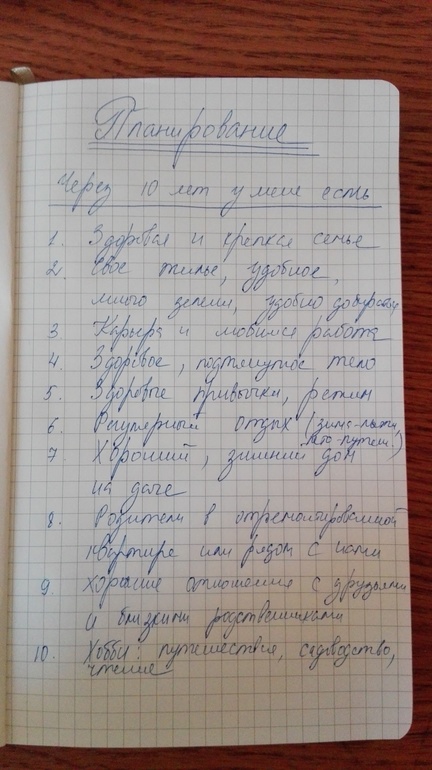 Планирование
Через 10 лет у меня есть
1. Здоровая и крепкая семья
2. Свое жилье, удобное,
много зелени, удобно добираться
3 Карьера и любимая работа
4. Здоровое, подтянутое тело
5. Здоровые привычки, режим
6. Регулярный отдых (зима-лыжи,
лето-путеш.)
7. Хороший, зимний дом
на даче
8. Родители в отремонтированной
квартире или рядом с нами
9. Хорошие отношения с друзьями
и близкими родственниками
10. Хобби: путешествия, садоводство,
чтение